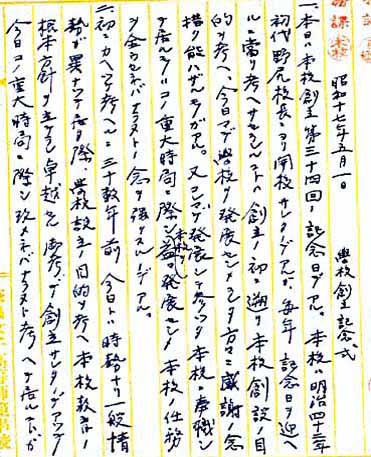 昭和十七年五月一日 學校創立記念式
一、本日ハ本校創立第三十四回ノ記念日デアル。本校ハ明治四十二年
初代野尻校長ニヨリ開校サレタノデアルガ、毎年記念日ヲ迎
ルニ當リ考ヘサセラレルノハ創立ノ初ニ遡リ本校創設ノ目
的ヲ考ヘ、今日マデ學校ヲ発展セシメラレタ方々ニ感謝ノ念
ヲ禁ズル能ハザルモノガアル。又コンマデ発展シテ参ツタ本校ニ奉職シ
テ居ルモノハコノ重大時局ニ際シ益々本校ヲ発展セシメ本校ノ任務
ヲ全カラシメネバナラヌトノ念ヲ強クスルノデアル。
二、初ニカヘツテ考ヘルニ三十数年前今日トハ時勢ナリ一般情
勢ガ異ツテ居ル際、學校設立ノ目的ヲ考ヘ本校教育ノ
根本方針ヲ立テラレ卓越シタ御考デ創立サレタノデアツテ
今日コノ重大時局ニ際シ改メネバナラヌト考ヘテ居ルコトガ